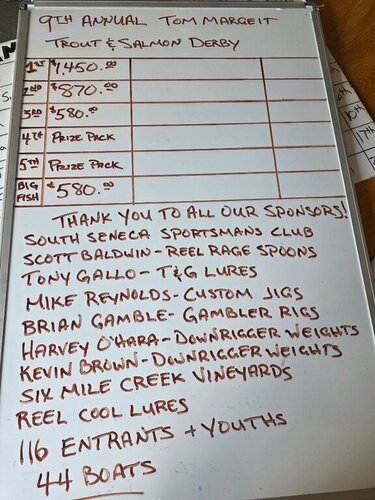 9TH ANNUAL TOM MARGEIT
TROUT & SALMON DERBY
1ST $1,450.00
2ND $870.00
3RD $580.00
4TH PRIZE PACK
5TH PRIZE PACK
BIG FISH $580.00
THANK YOU TO ALL OUR SPONSORS!
SOUTH SENECA SPORTSMANS CLUB
SCOTT BALDWIN - REEL RAGE SPOONS
TONY GALLO - T&G LURES
MIKE REYNOLDS - CUSTOM JIGS
BRIAN GAMBLE - GAMBLER RIGS
HARVEY O'HARA - DOWNRIGGER WEIGHTS
KEVIN BROWN - DOWNRIGGER WEIGHTS
SIX MILE CREEK VINEYARDS
REEL COOL LURES
116 ENTRANTS + YOUTHS
44 BOATS